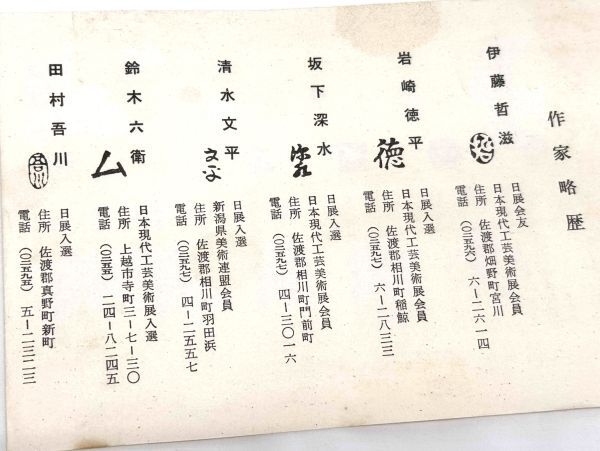 作家略歴
伊藤哲滋
日展会友
日本現代工芸美術展会員
住所 佐渡郡畑野町宮川
電話 (〇二五九六) 六－二六一四
岩崎徳平
徳
日展入選
日本現代工芸美術展会員
住所 佐渡郡相川町稲鯨
電話 (〇二五九七) 六－二八三三
坂下深水
日展入選
日本現代工芸美術展会員
住所 佐渡郡相川町門前町
電話 (〇二五九七) 四－三〇一六
清水文平
文平
日展入選
新潟県美術連盟会員
住所 佐渡郡相川町羽田浜
電話 (〇二五九七) 四－二五五七
鈴木六衛
ム
日本現代工芸美術展入選
住所 上越市寺町三－七－三〇
電話 (〇二五五) 二四－八一二四五
田村吾川
吾川
日展入選
住所 佐渡郡真野町新町
電話 (〇二五九五) 五－二三二三